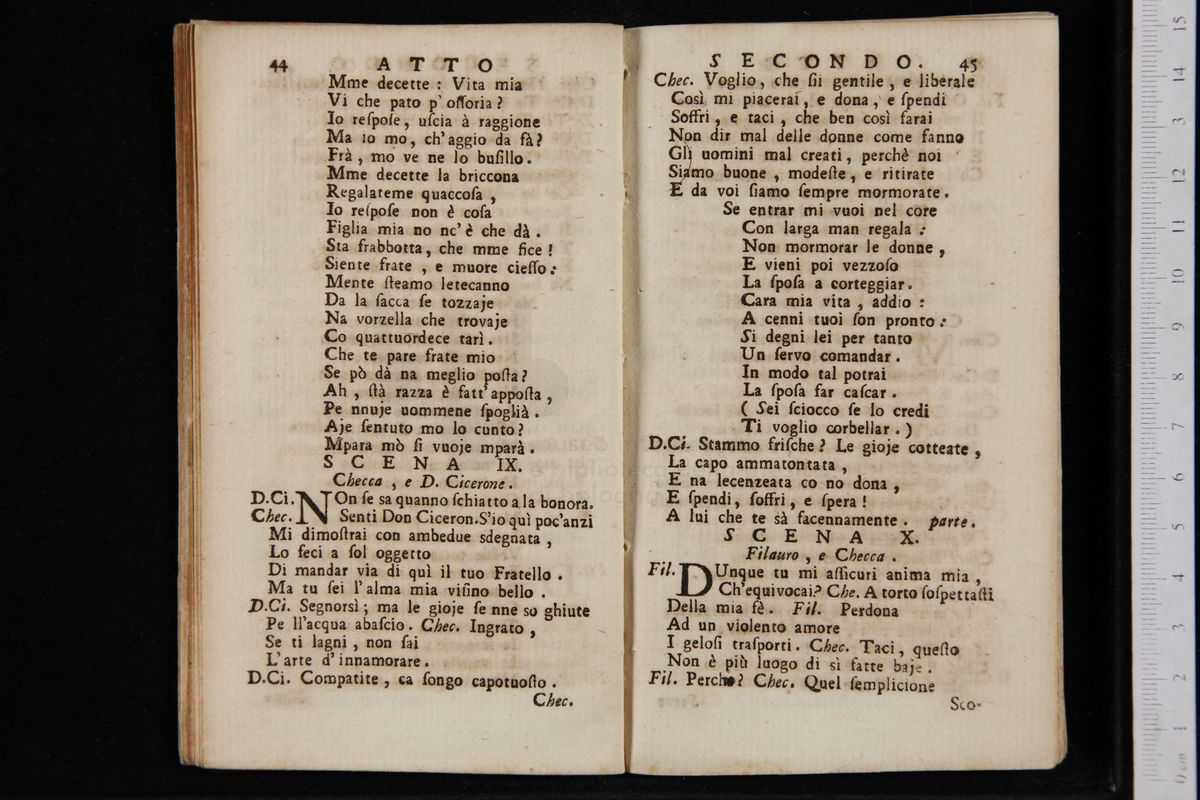 44 A T T O
Mme decette : Vita mia
Vi che pato p' oſſoria ?
Io reſpoſe, uſcia à raggione
Ma io mo, ch' aggio da fà ?
Frà , mo ve ne lo buſillo .
Mme decette la briccona
Regalateme quaccoſa ,
Io reſpoſe non è coſa
Figlia mia no nc' è che dà .
Sta frabbotta, che mme fice !
Siente frate , e muore cieſſo :
Mente ſteamo letecanno
Da la ſacca ſe tozzaje
Na vorzella che trovaje
Co quattuordece tarì .
Che te pare frate mio
Se pò dà na meglio poſta ?
Ah , ſtà razza è fatt' appoſta ,
Pe nnuje uommene ſpoglià .
Aje ſentuto mo lo cunto ?
Mpara mò ſi vuoje mparà .
S C E N A IX.
Checca , e D. Cicerone .
D.Ci. NOn ſe sa quanno ſchiatto a la bonora.
Chec. Senti Don Ciceron. S'io quì poc'anzi
Mi dimoſtrai con ambedue sdegnata ,
Lo feci a ſol oggetto
Di mandar via di quì il tuo Fratello .
Ma tu ſei l' alma mia viſino bello .
D.Ci. Segnorsì ; ma le gioje ſe nne so ghiute
Pe ll'acqua abaſcio . Chec. Ingrato ,
Se ti lagni , non ſai
L' arte d' innamorare .
D.Ci. Compatite , ca ſongo capotuoſto .
Chec.
S E C O N D O. 45
Chec. Voglio, che ſii gentile , e liberale
Così mi piacerai, e dona , e ſpendi
Soffri , e taci , che ben così farai
Non dir mal delle donne come fanno
Gli uomini mal creati, perchè noi
Siamo buone , modeſte , e ritirate
E da voi ſiamo ſempre mormorate .
Se entrar mi vuoi nel core
Con larga man regala :
Non mormorar le donne ,
E vieni poi vezzoſo
La ſpoſa a corteggiar .
Cara mia vita , addio :
A cenni tuoi ſon pronto :
Si degni lei per tanto
Un ſervo comandar .
In modo tal potrai
La ſpoſa far caſcar .
( Sei ſciocco ſe lo credi
Ti voglio corbellar . )
D.Ci. Stammo friſche ? Le gioje cotteate ,
La capo ammatontata ,
E na lecenzeata co no dona ,
E ſpendi, ſoffri , e ſpera !
A lui che te sà facennamente . parte.
S C E N A X.
Filauro , e Checca .
Fil. DUnque tu mi aſſicuri anima mia ,
Ch'equivocai ? Che. A torto ſoſpettaſti
Della mia fè . Fil. Perdona
Ad un violento amore
I geloſi traſporti . Chec. Taci, queſto
Non è più luogo di sì fatte baje .
Fil. Perchè ? Chec. Quel ſemplicione
Sco-